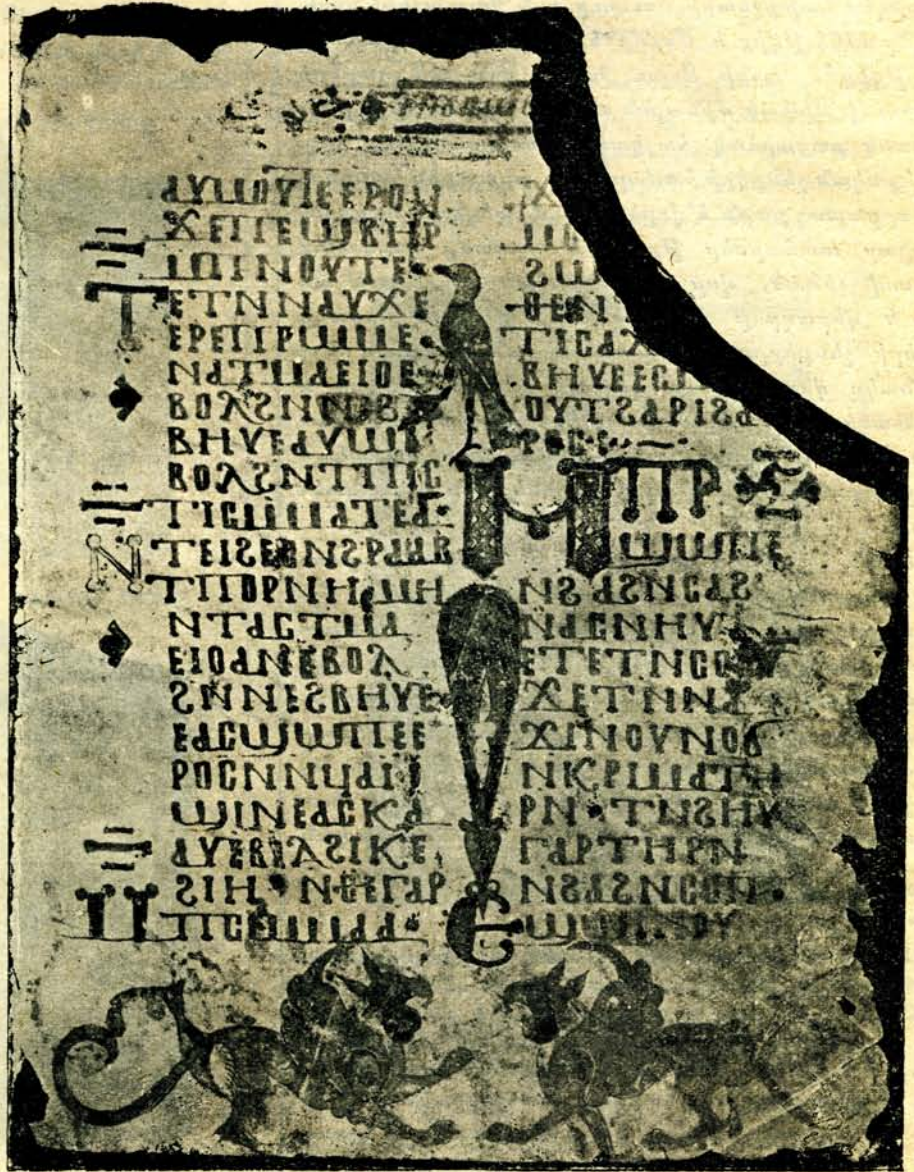 ⲁⲩⲙⲟⲩⲧⲉⲉⲣⲟϥ
ϫⲉⲡⲉϣⲃⲏⲣ
ⲙⲡⲛⲟⲩⲧⲉ·
ⲧⲉⲧⲛⲛⲁⲩϫⲉ
ⲉⲣⲉⲡⲣⲱⲙⲉ
ⲛⲁⲧⲙⲁⲉⲓⲟⲉ
ⲃⲟⲗϩⲛⲛⲉϩ
ⲃⲏⲩⲉⲁⲩⲱ
ⲃⲟⲗϩⲛⲧⲡⲓⲥ
ⲧⲓⲥⲙⲙⲁⲧⲉ·
ⲛⲧⲉⲓϩⲉⲟⲛϩⲣⲁⲁⲃ
ⲧⲡⲟⲣⲛⲏⲙⲏ
ⲛⲧⲁⲥⲧⲙⲁ
ⲉⲓⲟⲁⲛⲉⲃⲟⲗ
ϩⲛⲛⲉϩⲃⲏⲩⲉ
ⲉⲁⲥϣⲱⲡⲉⲉ
ⲣⲟⲥⲛⲛϥⲁⲓ
ϣⲓⲛⲉⲁⲥⲕⲁ
ⲁⲩⲉⲃⲟⲗϩⲓⲕⲉ
ϩⲓⲏ· ⲛⲑⲉⲅⲁⲣ
ⲙⲡⲥⲱⲙⲁ
ϩⲱ
ⲑⲉⲛ
ⲧⲓⲥⲁϫ
ⲃⲏⲩⲉⲉⲥⲙ
ⲟⲩⲧϩⲁⲣⲓϩⲁ
ⲣⲟⲥ
ⲙⲡⲣ
ϣⲱⲡⲉ
ⲛϩⲁϩⲛⲥⲁϩ
ⲛⲁⲥⲛⲏⲩ
ⲉⲧⲉⲧⲛⲥⲟ
ϫⲉⲧⲛⲛⲁ
ϫⲓⲛⲟⲩⲛⲟϭ
ⲛⲕⲣⲓⲙⲁⲧⲏ
ⲣⲛ· ⲧⲛϩⲏⲩ
ⲅⲁⲣⲧⲏⲣⲛ
ⲛϩⲁϩⲛⲥⲟⲡ·
ⲉϣⲱⲡⲉⲟⲩ